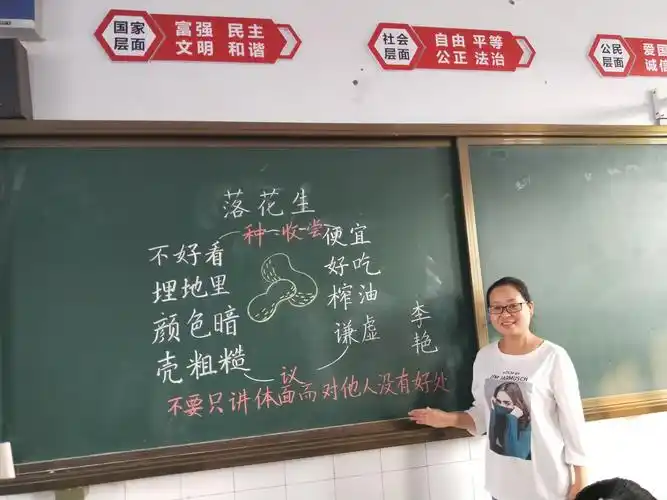 国家
层面
富强 民主
文明 和谐
社会
层面
自由 平等
公正 法治
公民
层面
爱国
诚信
落花生
种 收 尝
不好看
埋地里
颜色暗
壳粗糙
便宜
好吃
榨油
谦虚
李艳
议
不要只讲体面而对他人没有好处